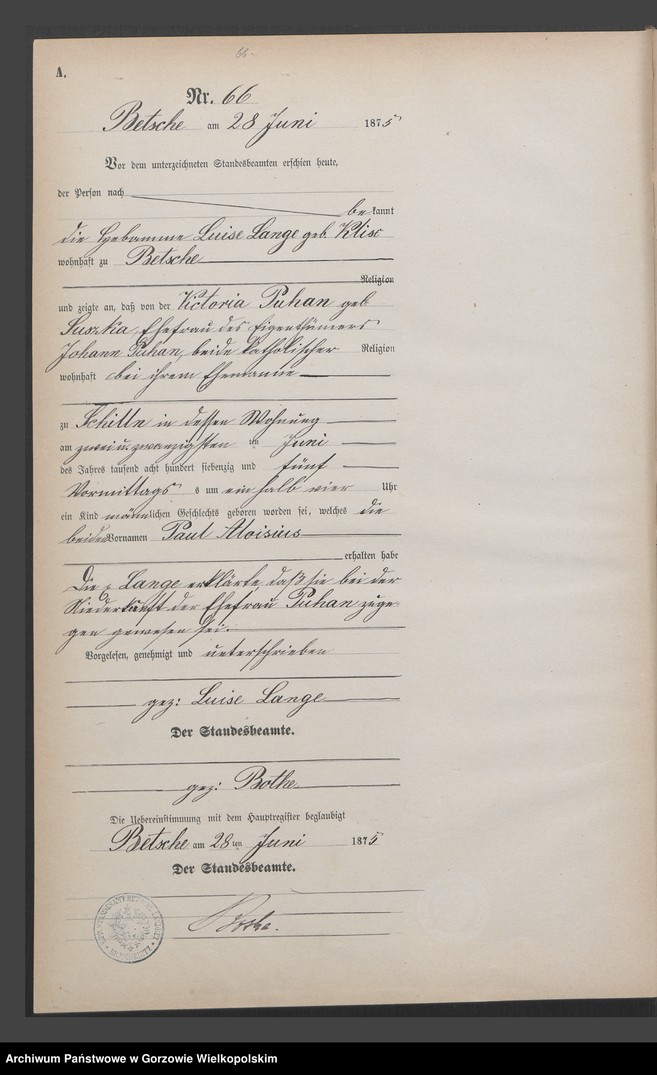 66.
A.
Nr. 66
Betsche am 28 Juni 1875
Vor dem unterzeichneten Standesbeamten erschien heute,
der Person nach
bekannt
die Hebamme Luise Lange geb. Klix
wohnhaft zu Betsche
Religion
und zeigte an, daß von der Victoria Puhan geb
Suszka, Ehefrau des Eigenthümers
Johann Puhan, beide katholischer Religion
wohnhaft bei ihrem Ehemanne
zu Schilln in dessen Wohnung
am zwei u. zwanzigsten ten Juni
des Jahres tausend acht hundert siebenzig und fünf
Vormittags s um ein halb vier Uhr
ein Kind männlichen Geschlechts geboren worden sei, welches die
beiden Vornamen Paul Aloisius
erhalten habe
Die Lange erklärte, daß sie bei der
Niederkunft der Ehefrau Puhan zuge-
gen gewesen sei.
Vorgelesen, genehmigt und unterschrieben
gez: Luise Lange
Der Standesbeamte.
gez: Bothe
Die Uebereinstimmung mit dem Hauptregister beglaubigt
Betsche am 28 ten Juni 1875
Der Standesbeamte.
Bothe.
Archiwum Państwowe w Gorzowie Wielkopolskim